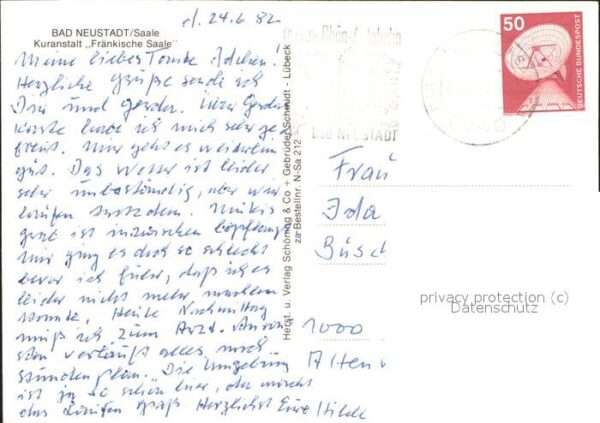 d. 24.6.82
BAD NEUSTADT/Saale
Kuranstalt „Fränkische Saale"
Meine liebe Tante Idchen!
Herzliche Grüße sende ich
Dir und Gerda. Über Gerdas
Karte habe ich mich sehr ge-
freut. Mir geht es weiterhin
gut. Das Wetter ist leider
sehr unbeständig, aber wir
laufen trotzdem.
ist inzwischen
Mir ging es doch so schlecht
bevor ich fuhr, daß ich es
leider nicht mehr machen
konnte. Heute Nachmittag
muß ich zum Arzt.
verläuft alles nach
Stundenplan. Die Umgebung
ist ja so schön hier, da macht
das Laufen Spaß. Herzlichst Eure Hilde
Herst. u. Verlag Schöning & Co + Gebrüder Schmidt - Lübeck
zu Bestellnr. N-Sa 212
BAD NEUSTADT
50
DEUTSCHE BUNDESPOST
Frau
Ida
Büsch
1000
Alten
privacy protection (c)
Datenschutz